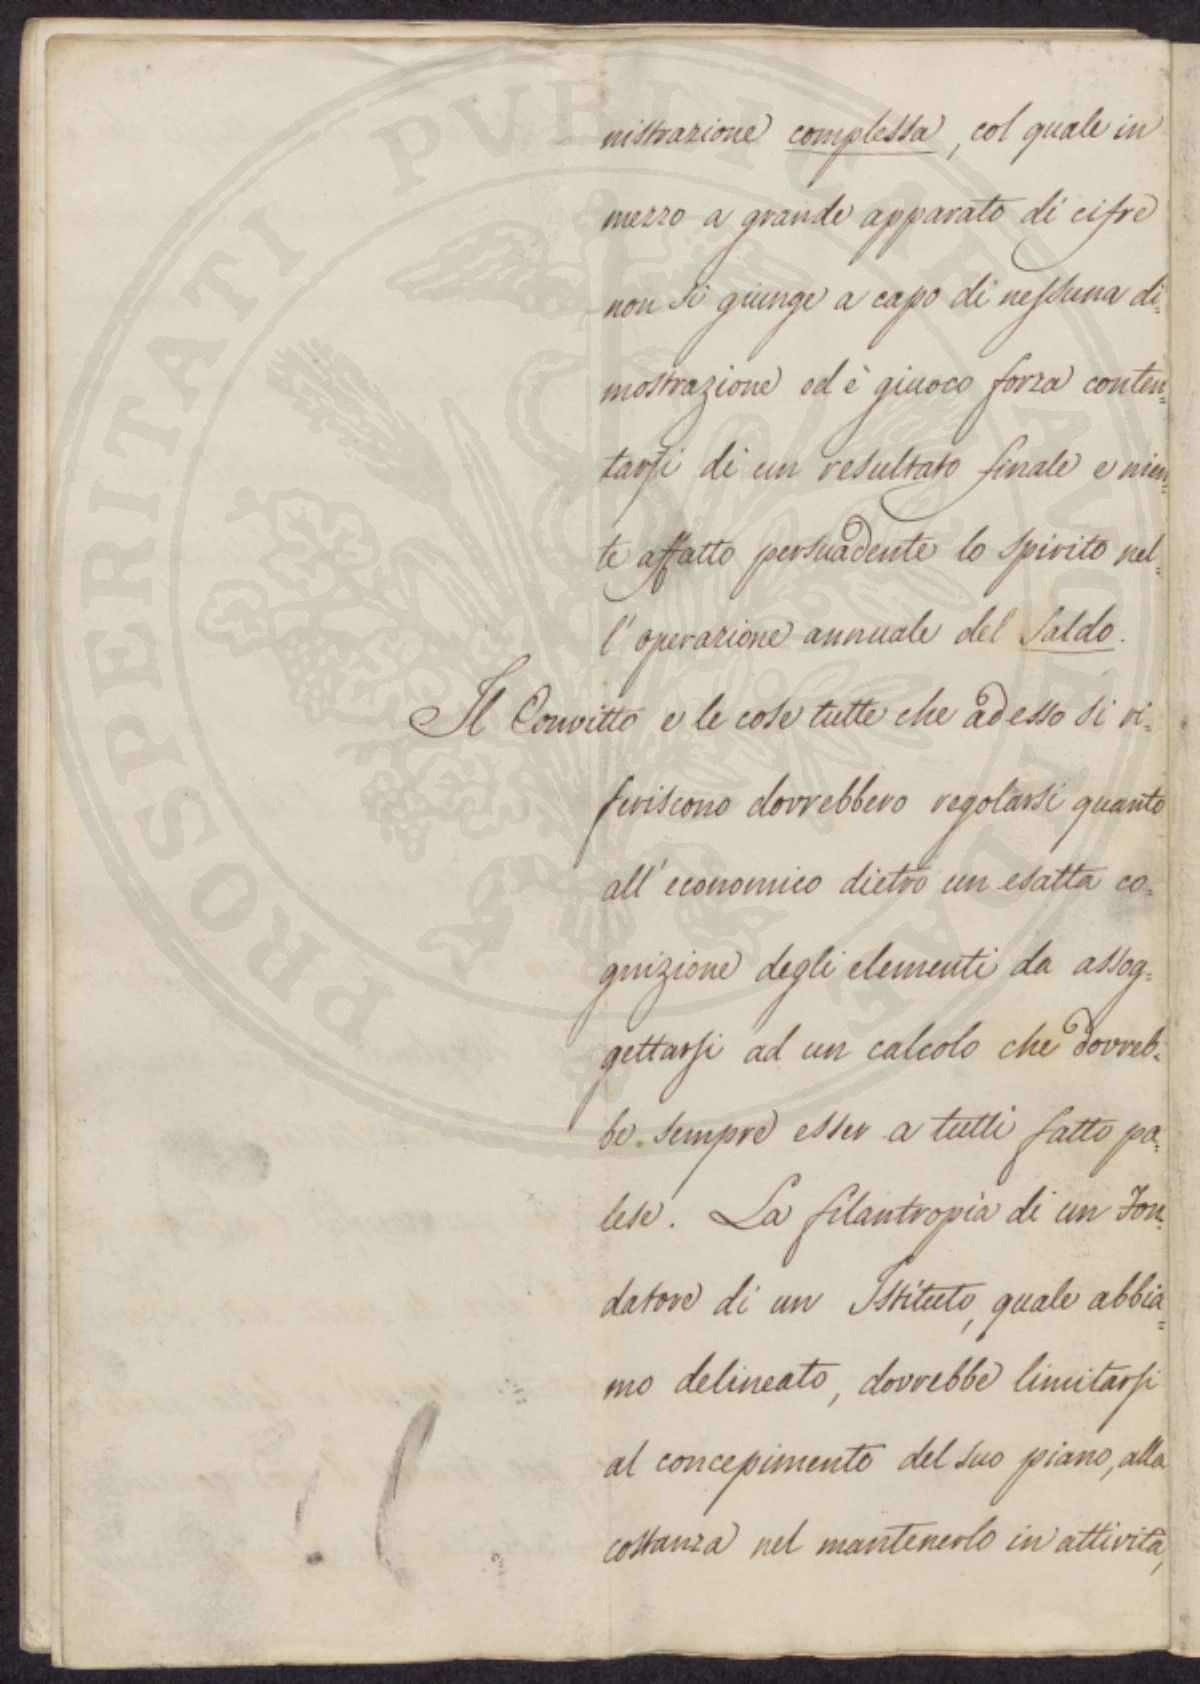 nistrazione complessa, col quale in
mezzo a grande apparato di cifre
non si giunge a capo di nessuna di=
mostrazione ed è giuoco forza conten=
tarsi di un resultato finale e nien=
te affatto persuadente lo spirito nel=
l'operazione annuale del Saldo.
Il Convitto e le cose tutte che ad esso si ri=
feriscono dovrebbero regolarsi quanto
all'economico dietro un esatta co=
gnizione degli elementi da assog=
gettarsi ad un calcolo che dovreb=
be sempre esser a tutti fatto pa=
lese. La filantropia di un Fon=
datore di un Istituto, quale abbia=
mo delineato, dovrebbe limitarsi
al concepimento del suo piano, alla
costanza nel mantenerlo in attività,
PROSPERITATI PVBLICAE AVGENDAE